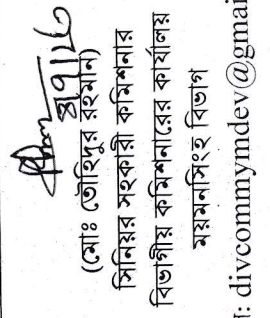 (মোঃ তৌহিদুর রহমান)
সিনিয়র সহকারী কমিশনার
বিভাগীয় কমিশনারের কার্যালয়
ময়মনসিংহ বিভাগ
: divcommymdev@gmai